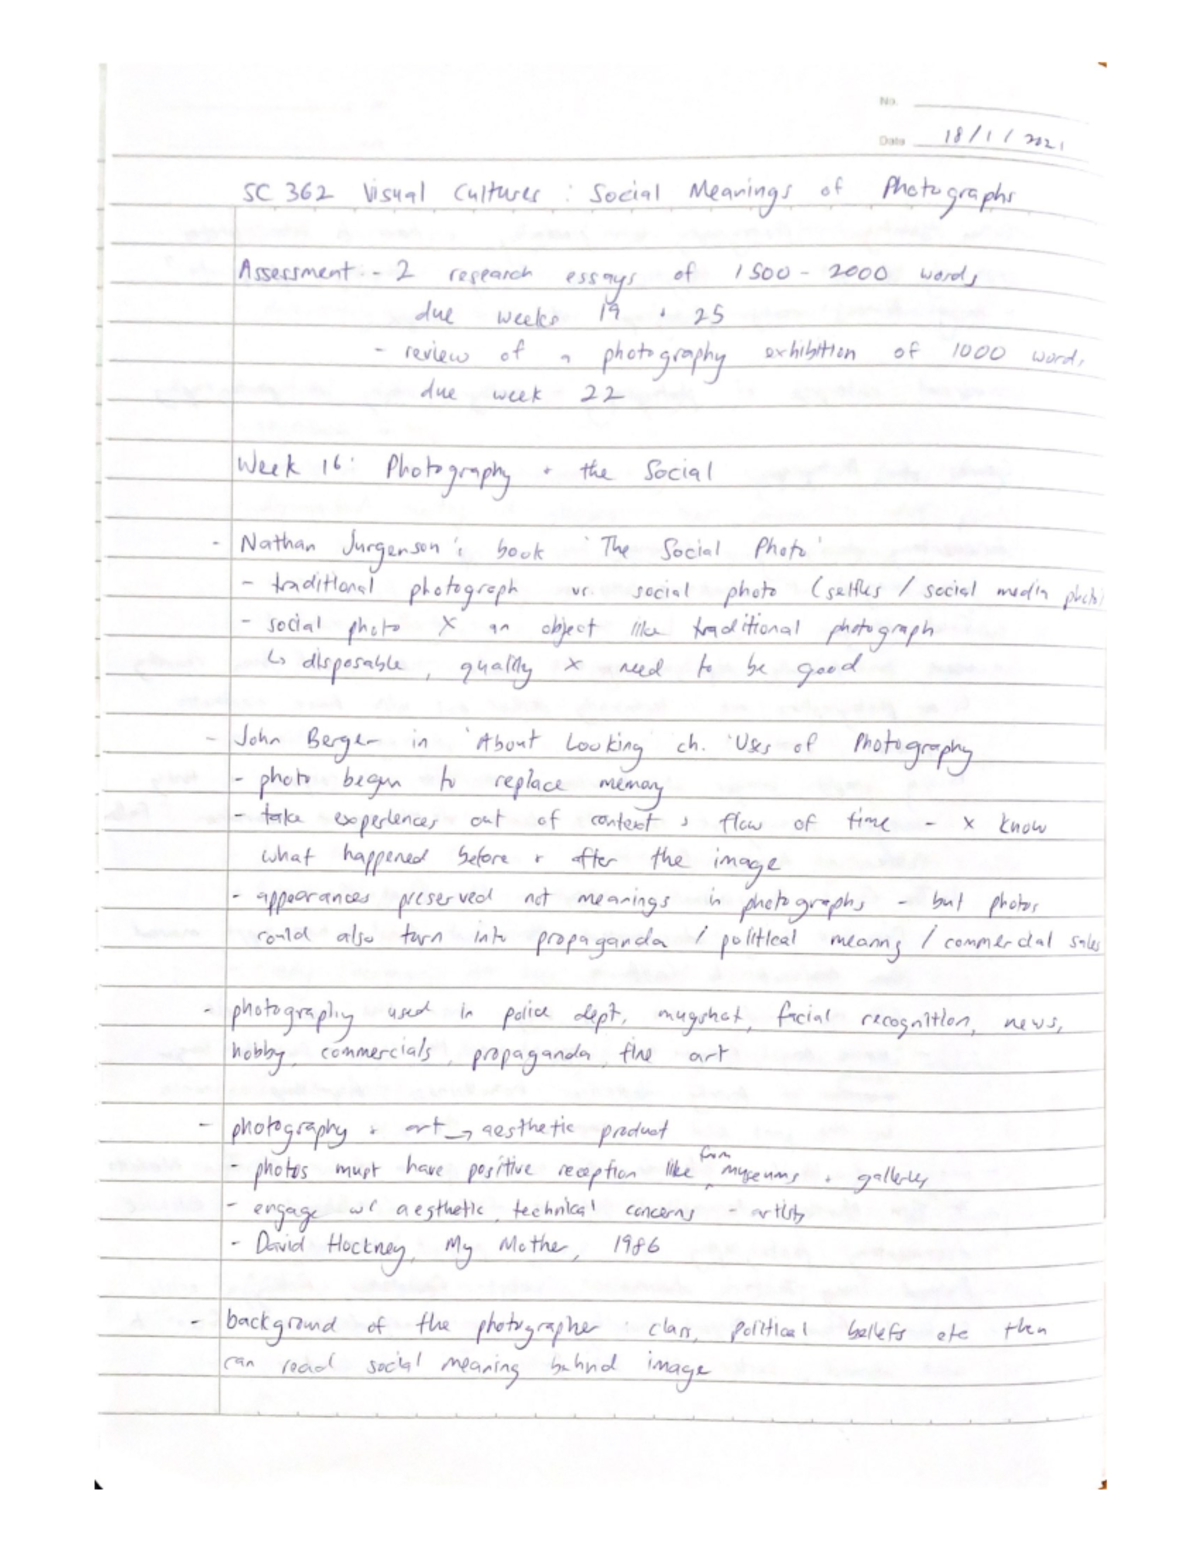 No.
Date 18/1/2021
SC 362 Visual Cultures : Social Meanings of Photographs
Assessment : - 2 research essays of 1500 - 2000 words
due weeks 19 + 25
- review of a photography exhibition of 1000 words
due week 22
Week 16: Photography + the Social
- Nathan Jurgenson's book 'The Social Photo'
- traditional photograph vs. social photo (selfies / social media photo)
- social photo x an object like traditional photograph
↳ disposable, quality x need to be good
- John Berger in 'About Looking' ch. 'Uses of Photography
- photo began to replace memory
- take experiences out of context & flow of time - x know
what happened before + after the image
- appearances preserved not meanings in photographs - but photos
could also turn into propaganda / political meaning / commercial sales
- photography used in police dept, mugshot, facial recognition, news,
hobby, commercials, propaganda, fine art
- photography + art → aesthetic product
- photos must have positive reception like from museums + galleries
- engage w/ aesthetic, technical concerns - artists
- David Hockney, My Mother, 1986
- background of the photographer : class, political beliefs etc then
can read social meaning behind image